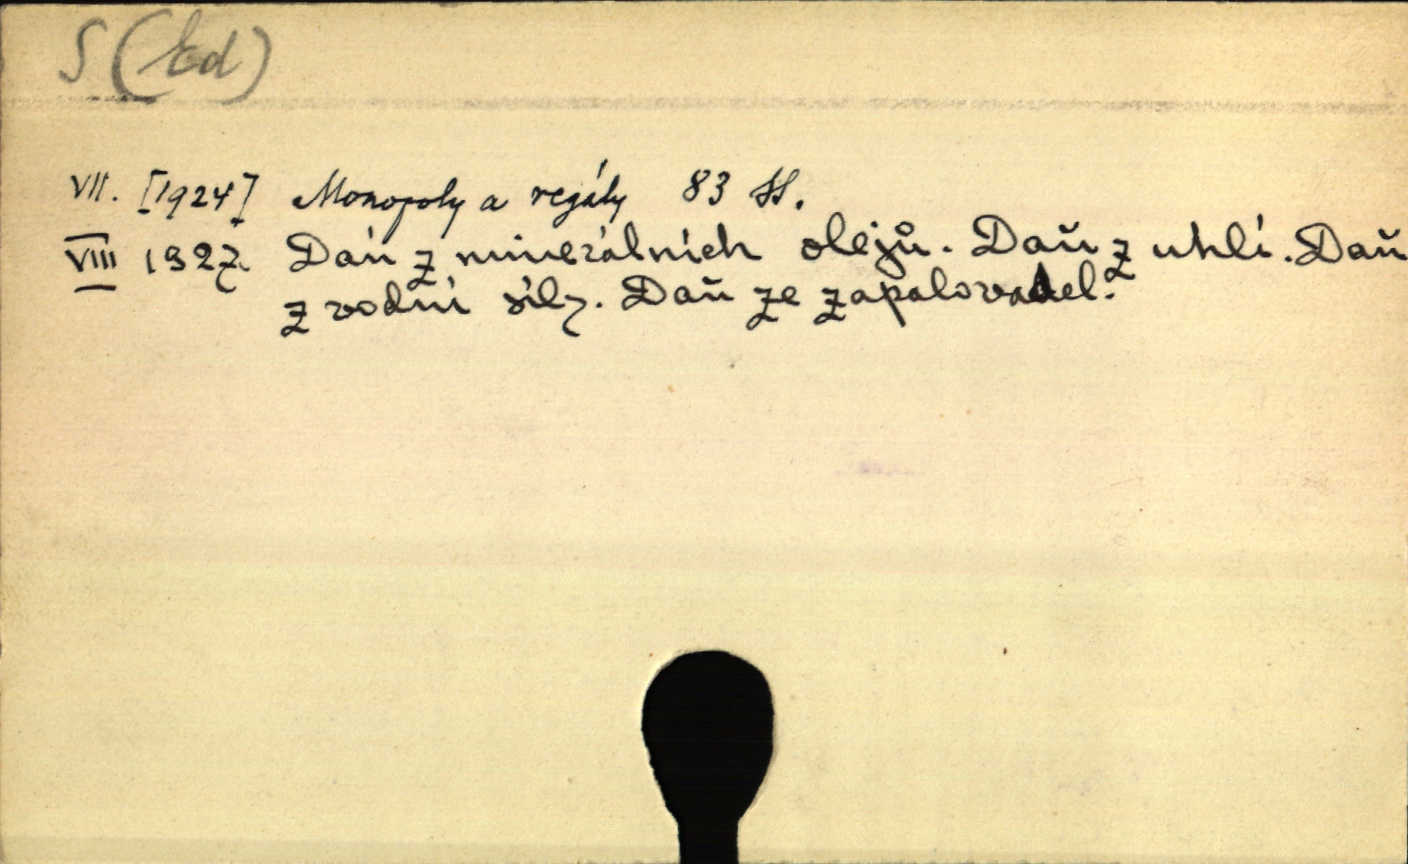 S (Ed)
VII. [1924] Monopoly a regály 83 SS.
VIII 1927. Daň z minerálních olejů. Daň z uhlí. Daň
z vodní síly. Daň ze zapalovadel.